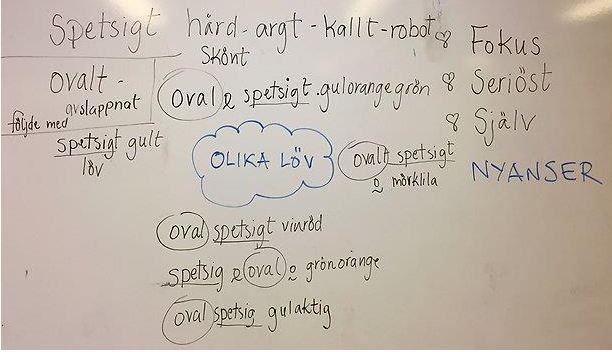 Spetsigt hård - argt - kallt - robot & Fokus
Skönt
Ovalt -
avslappnat
Oval & spetsigt . gulorangegrön & Seriöst
följde med
& Själv
spetsigt gult
löv
OLIKA LÖV
ovalt spetsigt
o mörklila
NYANSER
oval spetsigt vinröd
spetsig & oval o grönorange
oval spetsig gulaktig